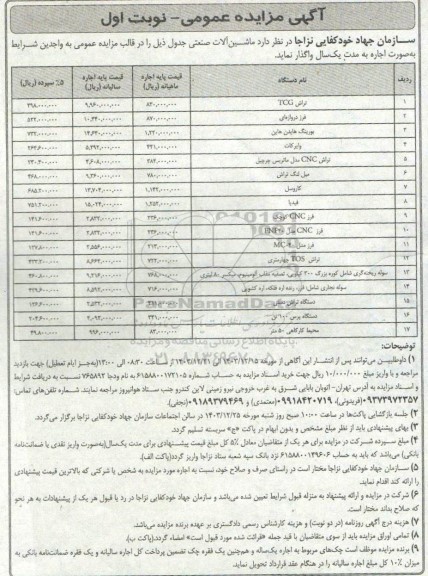 آگهی مزایده عمومی- نوبت اول
سازمان جهاد خودکفایی نزاجا در نظر دارد ماشین‌آلات صنعتی جدول ذیل را در قالب مزایده عمومی به واجدین شرایط
به‌صورت اجاره به مدت یک‌سال واگذار نماید.
ردیف نام دستگاه قیمت پایه اجاره ماهیانه (ریال) قیمت پایه اجاره سالیانه (ریال) ۵٪ سپرده (ریال)
۱ تراش TCG ۸۳۰,۰۰۰,۰۰۰ ۹,۹۶۰,۰۰۰,۰۰۰ ۴۹۸,۰۰۰,۰۰۰
۲ فرز دروازه‌ای ۸۷۰,۰۰۰,۰۰۰ ۱۰,۴۴۰,۰۰۰,۰۰۰ ۵۲۲,۰۰۰,۰۰۰
۳ بورینگ هایدن هاین ۱,۲۲۰,۰۰۰,۰۰۰ ۱۴,۶۴۰,۰۰۰,۰۰۰ ۷۳۲,۰۰۰,۰۰۰
۴ وایرکات
۵ تراش CNC مدل ماتریس چرچیل ۳۸۴,۰۰۰,۰۰۰ ۴,۶۰۸,۰۰۰,۰۰۰ ۲۳۰,۴۰۰,۰۰۰
۶ میل لنگ تراش ۷۸۰,۰۰۰,۰۰۰ ۹,۳۶۰,۰۰۰,۰۰۰ ۴۶۸,۰۰۰,۰۰۰
۷ کاروسل ۱,۱۴۲,۰۰۰,۰۰۰ ۱۳,۷۰۴,۰۰۰,۰۰۰ ۶۸۵,۲۰۰,۰۰۰
۸ فیدیا ۱,۲۵۲,۰۰۰,۰۰۰ ۱۵,۰۲۴,۰۰۰,۰۰۰ ۷۵۱,۲۰۰,۰۰۰
۹ فرز CNC ۲۳۶,۰۰۰,۰۰۰ ۲,۸۳۲,۰۰۰,۰۰۰ ۱۴۱,۶۰۰,۰۰۰
۱۰ فرز CNC مدل ۲۳۶,۰۰۰,۰۰۰ ۲,۸۳۲,۰۰۰,۰۰۰ ۱۴۱,۶۰۰,۰۰۰
۱۱ فرز مدل MC-۴۰ ۲۱۳,۰۰۰,۰۰۰ ۲,۵۵۶,۰۰۰,۰۰۰ ۱۲۷,۸۰۰,۰۰۰
۱۲ تراش TOS چهارمتری ۷۲۲,۰۰۰,۰۰۰ ۸,۶۶۴,۰۰۰,۰۰۰ ۴۳۳,۲۰۰,۰۰۰
۱۳ سوله ریخته‌گری شامل کوره بزرگ ۳۰۰ کیلویی، تصفیه مذاب آلومینیوم، میکسر ۸۰ لیتری ۷۶۸,۰۰۰,۰۰۰ ۹,۲۱۶,۰۰۰,۰۰۰ ۴۶۰,۸۰۰,۰۰۰
۱۴ سوله نجاری شامل: فرز، رنده اره فلکه، اره کشویی ۷۱۶,۰۰۰,۰۰۰ ۸,۵۹۲,۰۰۰,۰۰۰ ۴۲۹,۶۰۰,۰۰۰
۱۵ دستگاه تراش
۱۶ دستگاه پرس ۱۰۰ تن
۱۷ محیط کارگاهی ۵۰ متر ۸۳,۰۰۰,۰۰۰ ۹۹۶,۰۰۰,۰۰۰ ۴۹,۸۰۰,۰۰۰
ParsNamadData
توضیحات:
۱) داوطلبین می‌توانند پس از انتشار این آگهی از مورخه ۱۴۰۳/۱۲/۱۵ الی ۱۴۰۳/۱۲/۲۱ از ساعت ۰۸:۳۰ الی ۱۳:۰۰ (به‌جز ایام تعطیل) جهت بازدید
مراجعه و با واریز مبلغ ۱۰/۰۰۰/۰۰۰ ریال جهت خرید اسناد مزایده به حساب شماره ۶۱۵۸۸۰۰۱۷۲۱۰۵ به نام وددجا ۷۶۵۸۹۲ نسبت به دریافت شرایط
و اسناد مزایده به آدرس تهران- اتوبان بابایی شرق به غرب خروجی نیرو زمینی لاین کندرو جنب سند هوانیروز مراجعه نمایند. شماره‌های تلفن‌های تماس:
۰۹۳۷۳۹۷۲۳۵۷(فریدونی)، ۰۹۹۱۸۴۲۰۷۱۹ (معتمدی) و ۰۹۱۸۹۳۷۹۴۶۹(نجفی).
۲) جلسه بازگشایی پاکت‌ها در ساعت ۱۰:۰۰ صبح روز شنبه مورخه ۱۴۰۳/۱۲/۲۵ در سالن اجتماعات سازمان جهاد خودکفایی نزاجا برگزار می‌گردد.
۳) بهای پیشنهادی باید از نظر مبلغ مشخص و بدون ابهام در پاکت «ج» سربسته تسلیم گردد.
۴) مبلغ سپرده شرکت در مزایده برای هر یک از متقاضیان معادل ۵٪ کل مبلغ قیمت پیشنهادی برای مدت یک‌سال(به‌صورت واریز نقدی یا ضمانت‌نامه
بانکی) می‌باشد که باید به حساب ۶۱۵۸۸۰۰۱۳۹۶۰۶ نزد بانک سپه شعبه ستاد نزاجا واریز گردد(پاکت الف).
۵) سازمان جهاد خودکفایی نزاجا مختار است در راستای صرفه و صلاح خود، نسبت به اجاره مورد مزایده به شخص یا شرکتی که بالاترین قیمت پیشنهادی
را ارائه کند اقدام نماید.
۶) شرکت در مزایده و ارائه پیشنهاد به منزله قبول شرایط تعیین شده می‌باشد و سازمان جهاد خودکفایی نزاجا در رد یا قبول هر یک از پیشنهادات به هر نحو
که صلاح بداند مختار است.
۷) هزینه درج آگهی روزنامه (در دو نوبت) و هزینه کارشناس رسمی دادگستری بر عهده برنده مزایده می‌باشد.
۸) تمامی اوراق مزایده باید از سوی متقاضیان با قید جمله «قرائت شده مورد قبول است» امضاء گردد.(پاکت ب).
۹) برنده مزایده موظف است چک‌های مربوط به اجاره یک‌ساله و هم‌چنین یک فقره چک تضمین پرداخت کل اجاره سالیانه و یک فقره ضمانت‌نامه بانکی به
میزان ۱۰٪ کل مبلغ اجاره سالیانه را در هنگام عقد قرارداد تحویل نماید.